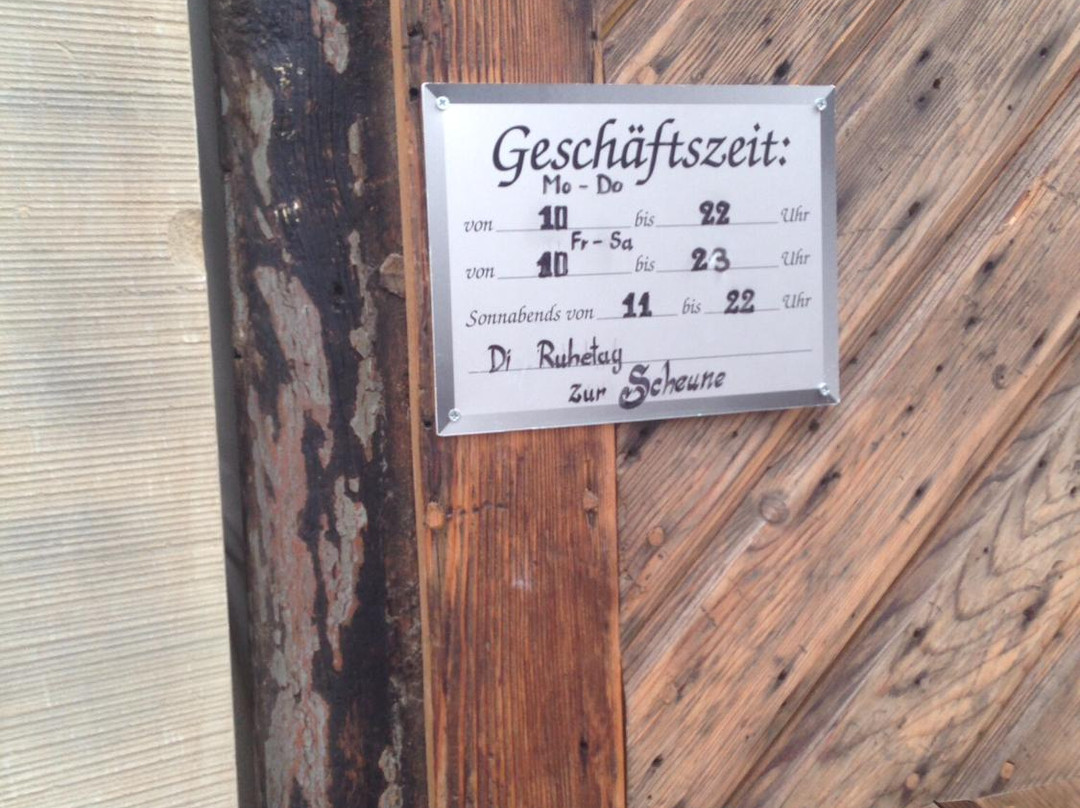 Geschäftszeit:
Mo - Do
von 10 bis 22 Uhr
Fr - Sa
von 10 bis 23 Uhr
Sonnabends von 11 bis 22 Uhr
Di Ruhetag
zur Scheune